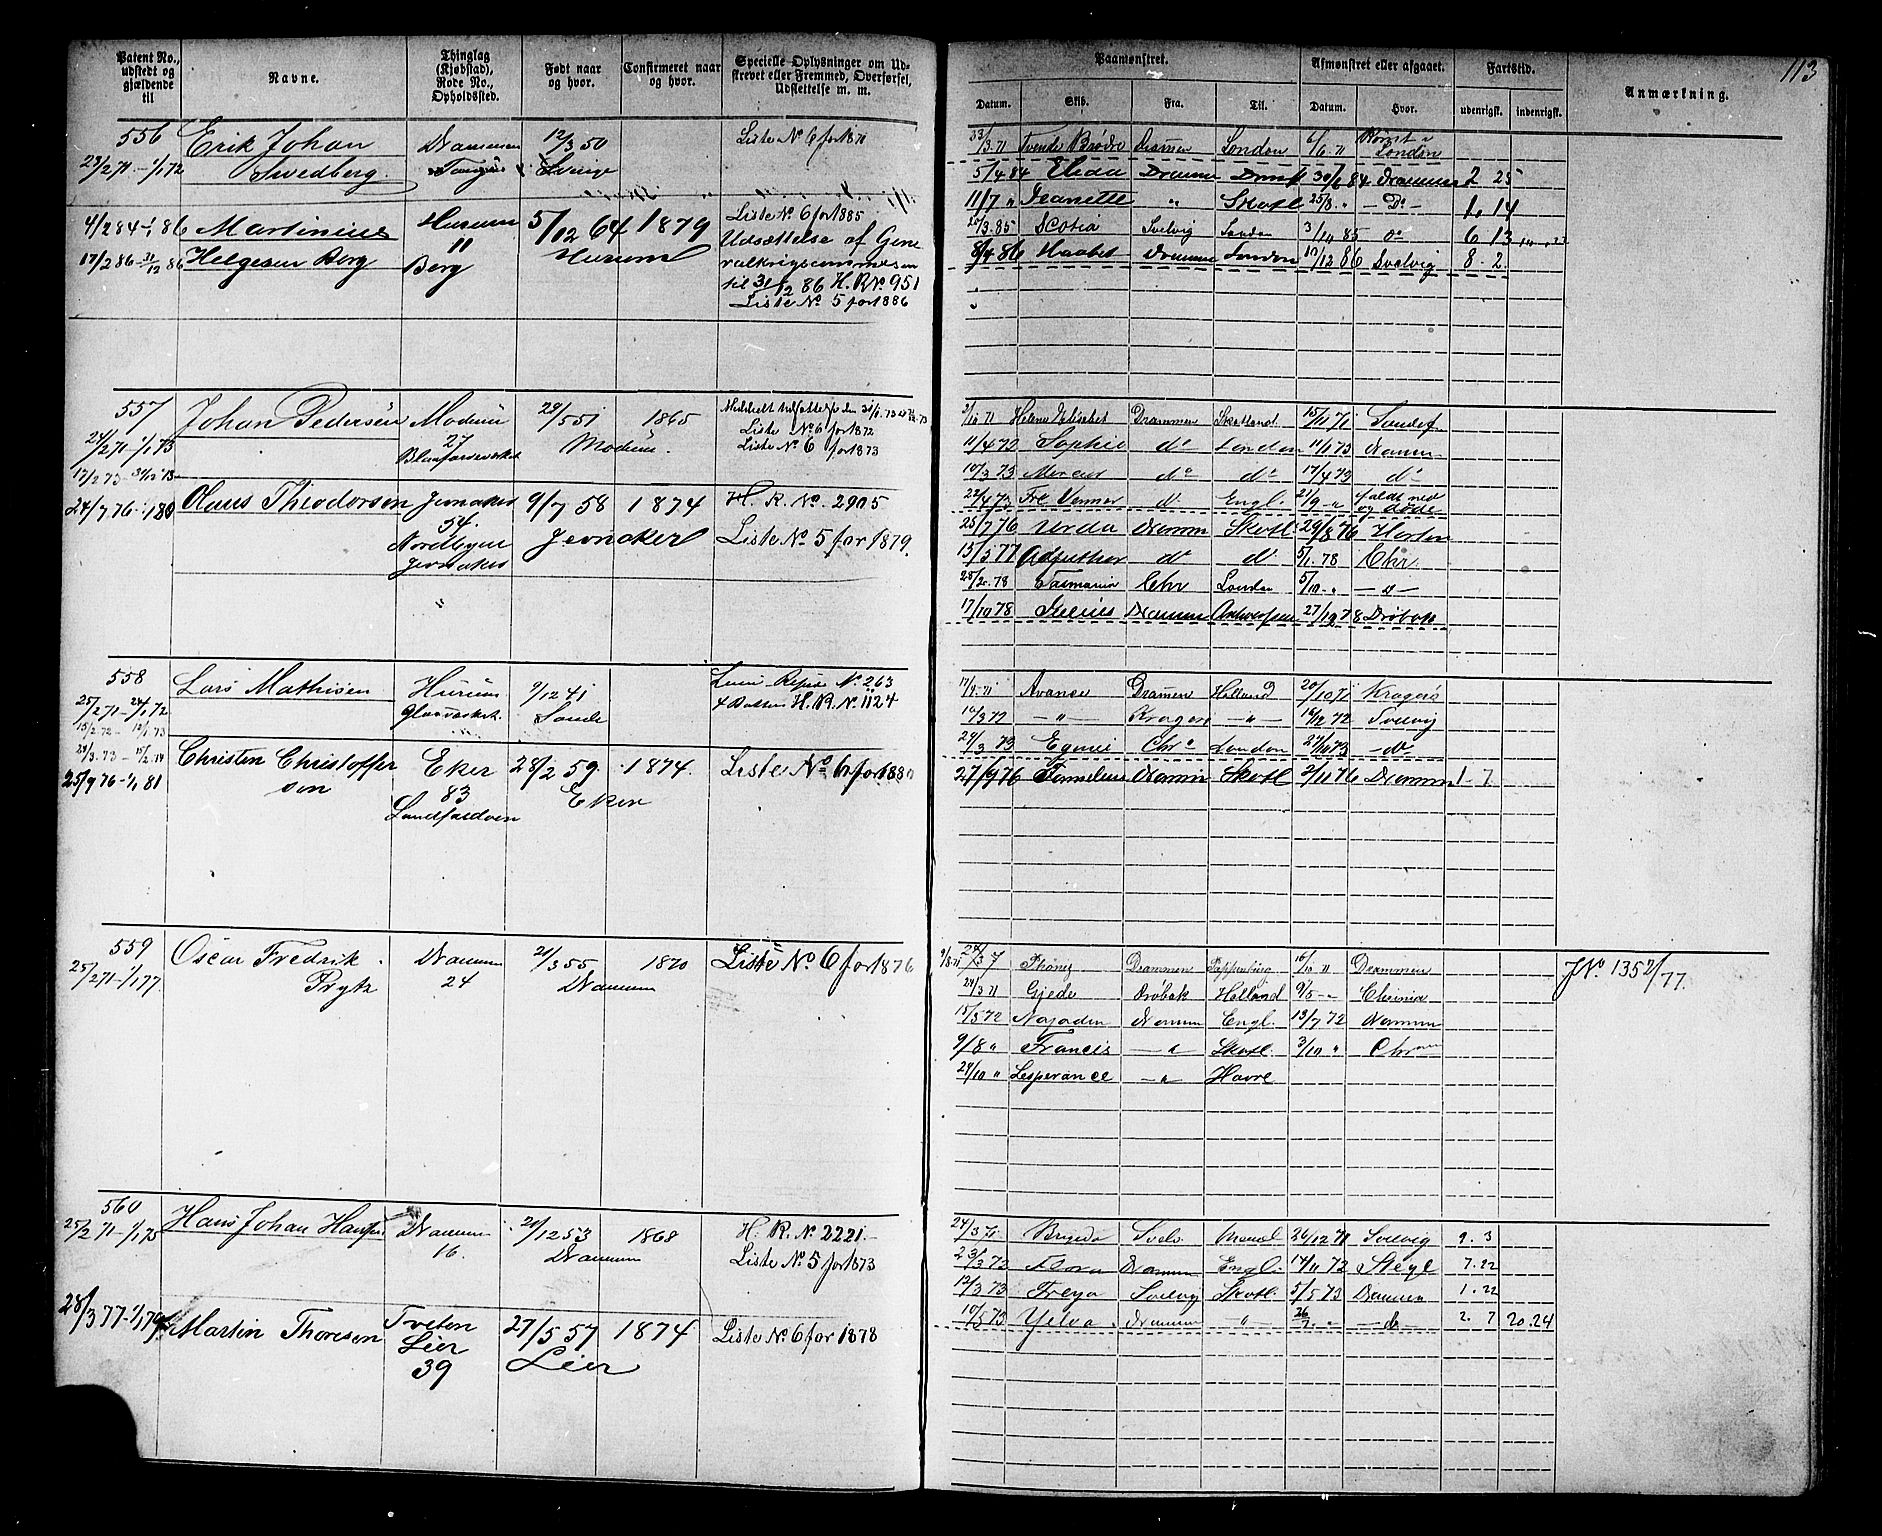 113
Patent No., udstedt og gjældende til
Navne.
Thinglag (Kjøbstad), Rode No., Opholdssted.
Født naar og hvor.
Confirmeret naar og hvor.
Specielle Oplysninger om Udskrevet eller Fremmed, Overførsel, Udslettelse m. m.
Paamønstret.
Afmønstret eller afgaaet.
Fartstid.
Anmærkning.
Datum. Skib. Fra. Til. Datum. Hvor. udenrigsk. indenrigsk.
556 Erik Johan Drammen 12/3 50 Liste No 6 for 1871
23/2 71 - 1/1 72 Swedberg.
4/2 84 - 1/1 86 Martinius Hurum 5/12 64 1879 Liste No 6 for 1885
17/2 86 - 31/12 86 Helgesen Berg 11 Berg Hurum Udsættelse af Gene
ralkrigscommissen
til 31/12 86 H. R. No. 951
Liste No 5 for 1886
Tvende Brødre Drammen London 6/6 71 London
5/4 84 Elida Dramme 30/6 84 Drammen 2 25
11/7 " Jeanette " Skotl 25/8 " - Do - 1. 14
20/3 85 Scotia Svelvig London 3/10 85 do 6 13
8/4 86 Haabet Dramme London 10/12 86 Svelvig 8 2
557 Johan Pedersen Modum 29/5 51 1865
24/2 71 - 1/1 73 27 Modum. Liste No 6 for 1872
17/2 73 - 31/12 73 Liste No 6 for 1873
24/7 76 - 1/1 80 Olaus Theodorsen Jevnaker 9/7 58 1874 H. R. No. 2905
54. Jevnaker Liste No 5 for 1879.
Nordbyen
Jevnaker
Drammen Skotland 15/11 71 Sandef
11/4 72 Sophie do London 11/1 73 Dramm
10/3 73 Mercur do do 17/4 73 do
22/4 73 Engl. 21/9 " faldt ned og døde
25/7 76 Dramm Skotl. 29/8 76 Horten
13/3 77 do do 5/1. 78 Chr.
28/2. 78 Tasmania Chr London 5/10 - " - " -
17/10 78 Dramm Antwerpen 27/12 78 Drøbak
558 Lars Mathisen Hurum 9/12 41
25/2 71 - 24/1 72 Glasværket. Sande H. R. No 1124
25/9 76 - 1/1 81 Christen Christoffer Eker 28/2 59. 1874. Liste No 6 for 1880
sen 83 Eker
Avance Drammen Holland 20/10 71 Kragerø
10/3 72 - " - Kragerø - " - 16/12 72 Svelvig
29/3 73 Chra London 27/10 73 - do
27/9 76 Dramm Skotl 2/11 76 Dramm 1. 7
559 Oscar Fredrik Drammen 21/3 55 1870 Liste No 6 for 1876
25/2 71 - 1/1 77. Prytz 24 Drammen
Drammen Pappenburg 16/10 " Drammen J No 1352/77.
29/3 71 Gjede Drøbak Holland 9/5 - " Chrania
15/3 72 Najaden Dramm Engl. 13/7 72 Dramm
9/8 " Francis - " Skotl. 3/10 " Chr
29/10 " Lesperance - " - Havre
560 Hans Johan Hansen Drammen 21/12 53 1868 H. R. No 2221.
25/2 71 - 1/1 75 16. Drammen Liste No 5 for 1873
28/3 77 - 1/1 79 Martin Thoresen Tveten 27/5 57 1874 Liste No 6 for 1878
Lier Lier
39
24/3 71 Svelv. 24/12 71 Svelvig 9. 3
23/3 72 Flora Dramm Engl. 14/11 72 7. 22
12/3 73 Freya Svelvig Skotl. 5/5 73 Dramm 1. 22
10/5 73 Ydva Dramm - " - 26/7. " - do - 2. 7 20. 24